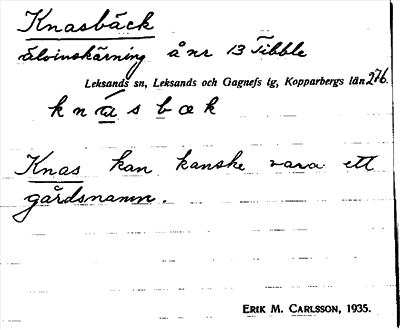 Knasbäck
älvinskärning å nr 13 Tibble
Leksands sn, Leksands och Gagnefs tg, Kopparbergs län 276.
k n a s b æ k
Knas kan kanske vara ett
gårdsnamn.
ERIK M. CARLSSON, 1935.